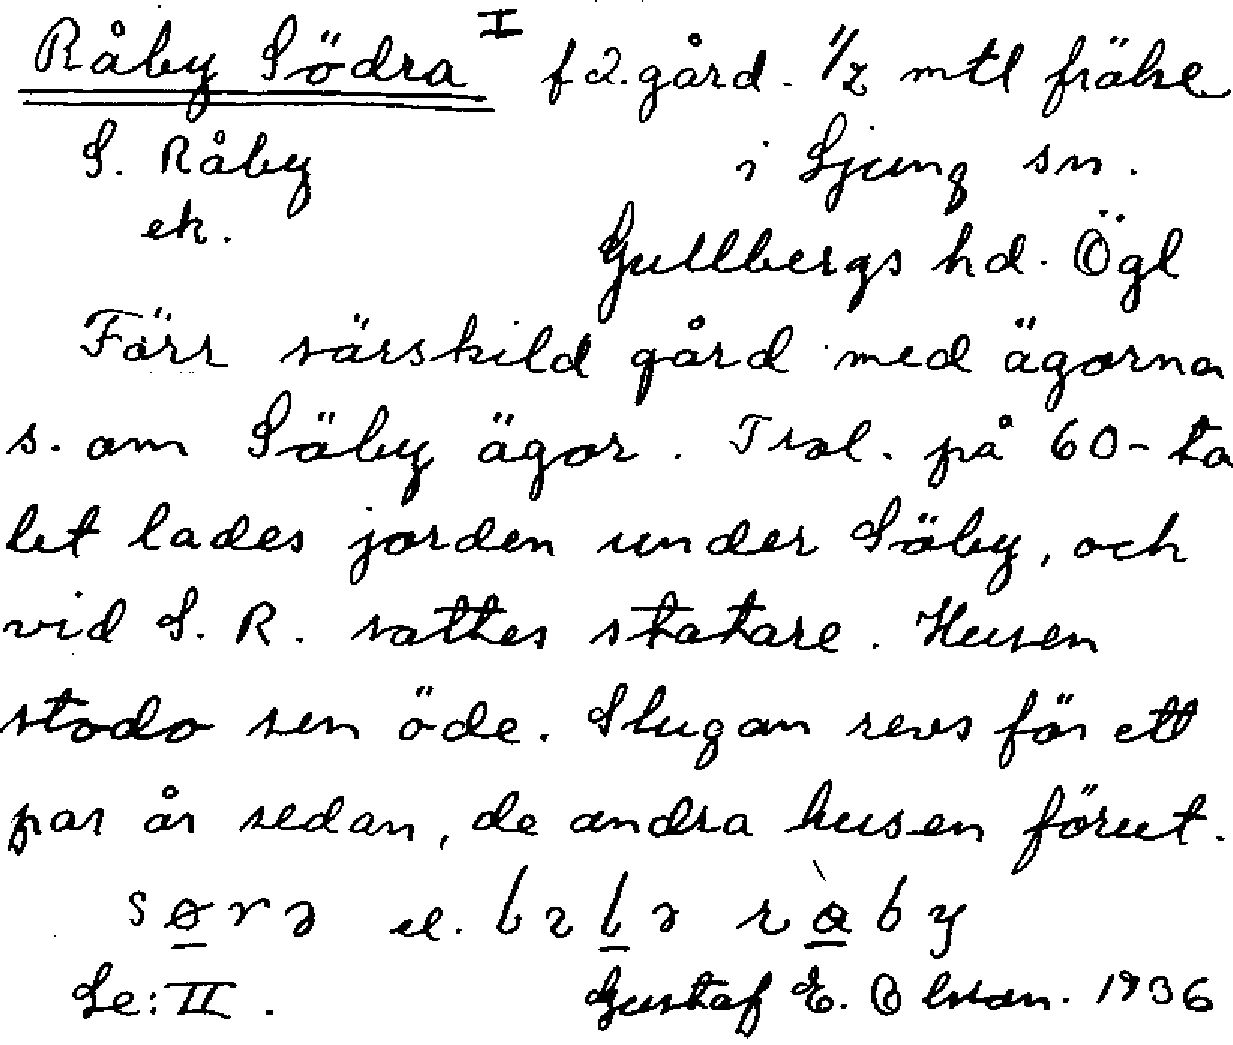 Råby Södra I f d. gård. 1/2 mtl frälse
S. Råby i Ljung sn.
ek. Gullbergs hd. Ögl
Förr särskild gård med ägorna
s. om Säby ägor. Trol. på 60-ta
let lades jorden under Säby, och
vid S. R. sattes statare. Husen
stodo sen öde. Stugan revs för ett
par år sedan, de andra husen förut.
el.
Se: II. Gustaf E. Olsson. 1936